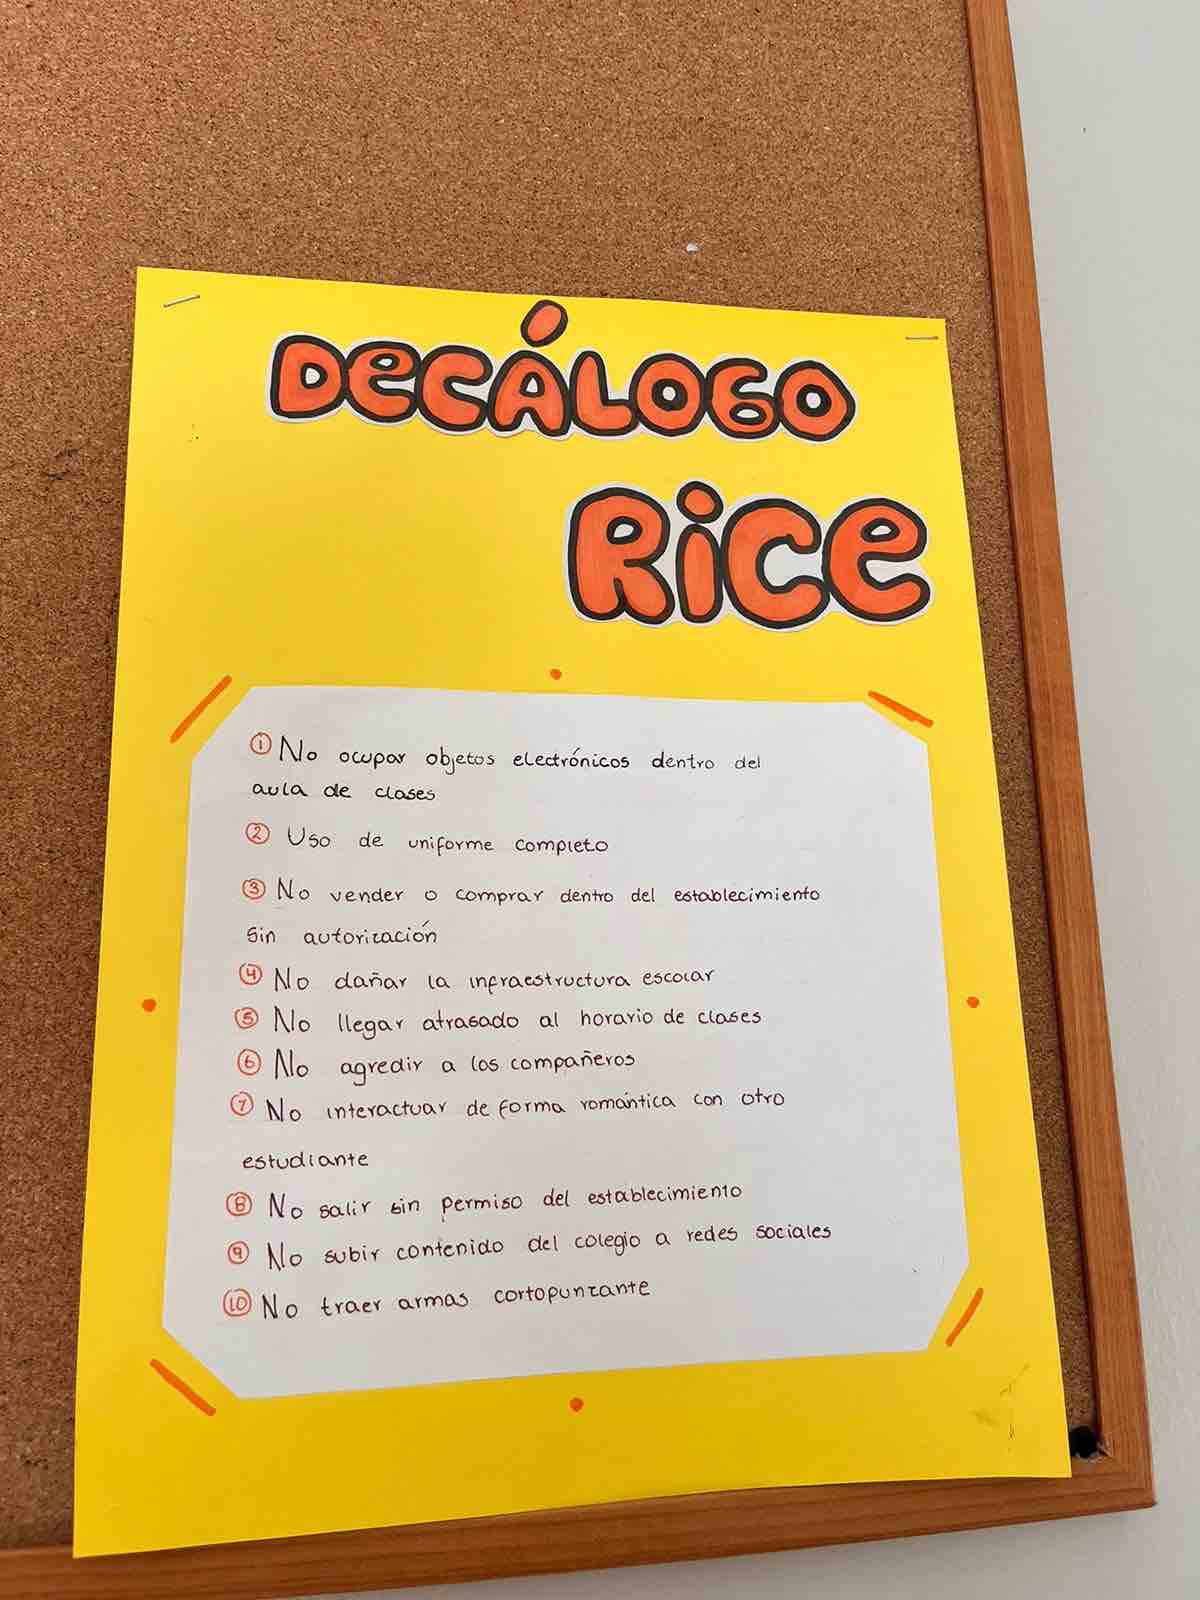 DECÁLOGO
RICE
① No ocupar objetos electrónicos dentro del
aula de clases
② Uso de uniforme completo
③ No vender o comprar dentro del establecimiento
sin autorización
④ No dañar la infraestructura escolar
⑤ No llegar atrasado al horario de clases
⑥ No agredir a los compañeros
⑦ No interactuar de forma romántica con otro
estudiante
⑧ No salir sin permiso del establecimiento
⑨ No subir contenido del colegio a redes sociales
⑩ No traer armas cortopunzante